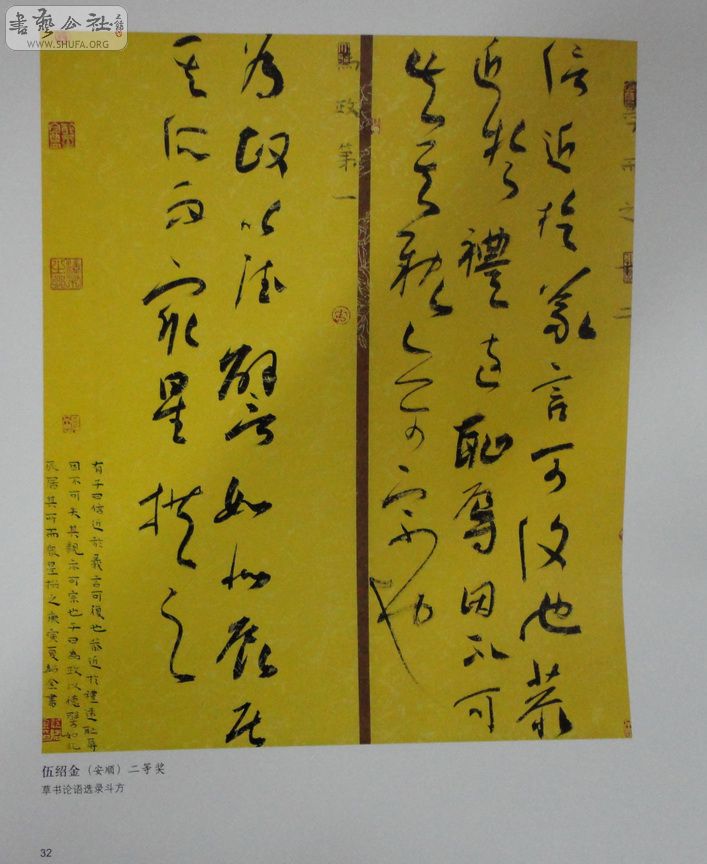 書藝公社
WWW.SHUFA.ORG
學而之十二
信近於義言可復也恭
近於禮遠恥辱因不可
失其親亦可宗也
為政第一
為政以德譬如北辰居
其所而眾星拱之
有子曰信近於義言可復也恭近於禮遠恥辱
因不可失其親亦可宗也子曰為政以德譬如北
辰居其所而眾星拱之庚寅夏紹金書
伍绍金（安顺）二等奖
草书论语选录斗方
32